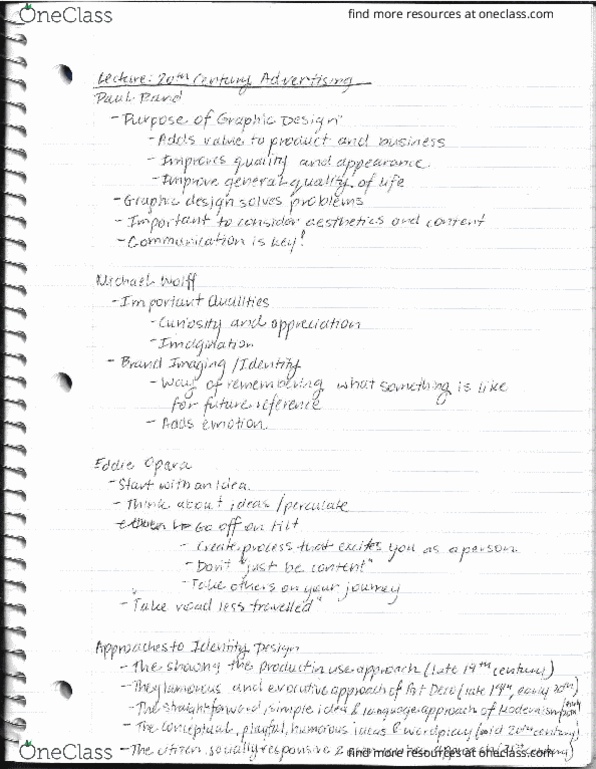 OneClass
find more resources at oneclass.com
Lecture: 20th Century Advertising
Paul Rand
- Purpose of Graphic Design
- Adds value to product and business
- Improves quality and appearance.
- Improve general quality of life
- Graphic design solves problems
- Important to consider aesthetics and content
- Communication is key!
Michael Wolff
- Important Qualities
- Curiosity and appreciation
- Imagination
- Brand Imaging /Identity
- Way of remembering what something is like
for future reference
- Adds emotion.
Eddie Opara
- Start with an idea.
- Think about ideas /percolate
Go off on tilt
- Create process that excites you as a person
- Don't "just be content"
- Take others on your journey
- Take road less travelled"
Approaches to Identity Design
- The showing the product in use approach (late 19th century)
- The glamorous and evocative approach of Art Deco (late 19th, early 20th)
- The straightforward, simple idea & language approach of Modernism
- The conceptual, playful, humorous ideas & wordplay (mid 20th century)
- The citizen, socially responsive &
OneClass
find more resources at oneclass.com